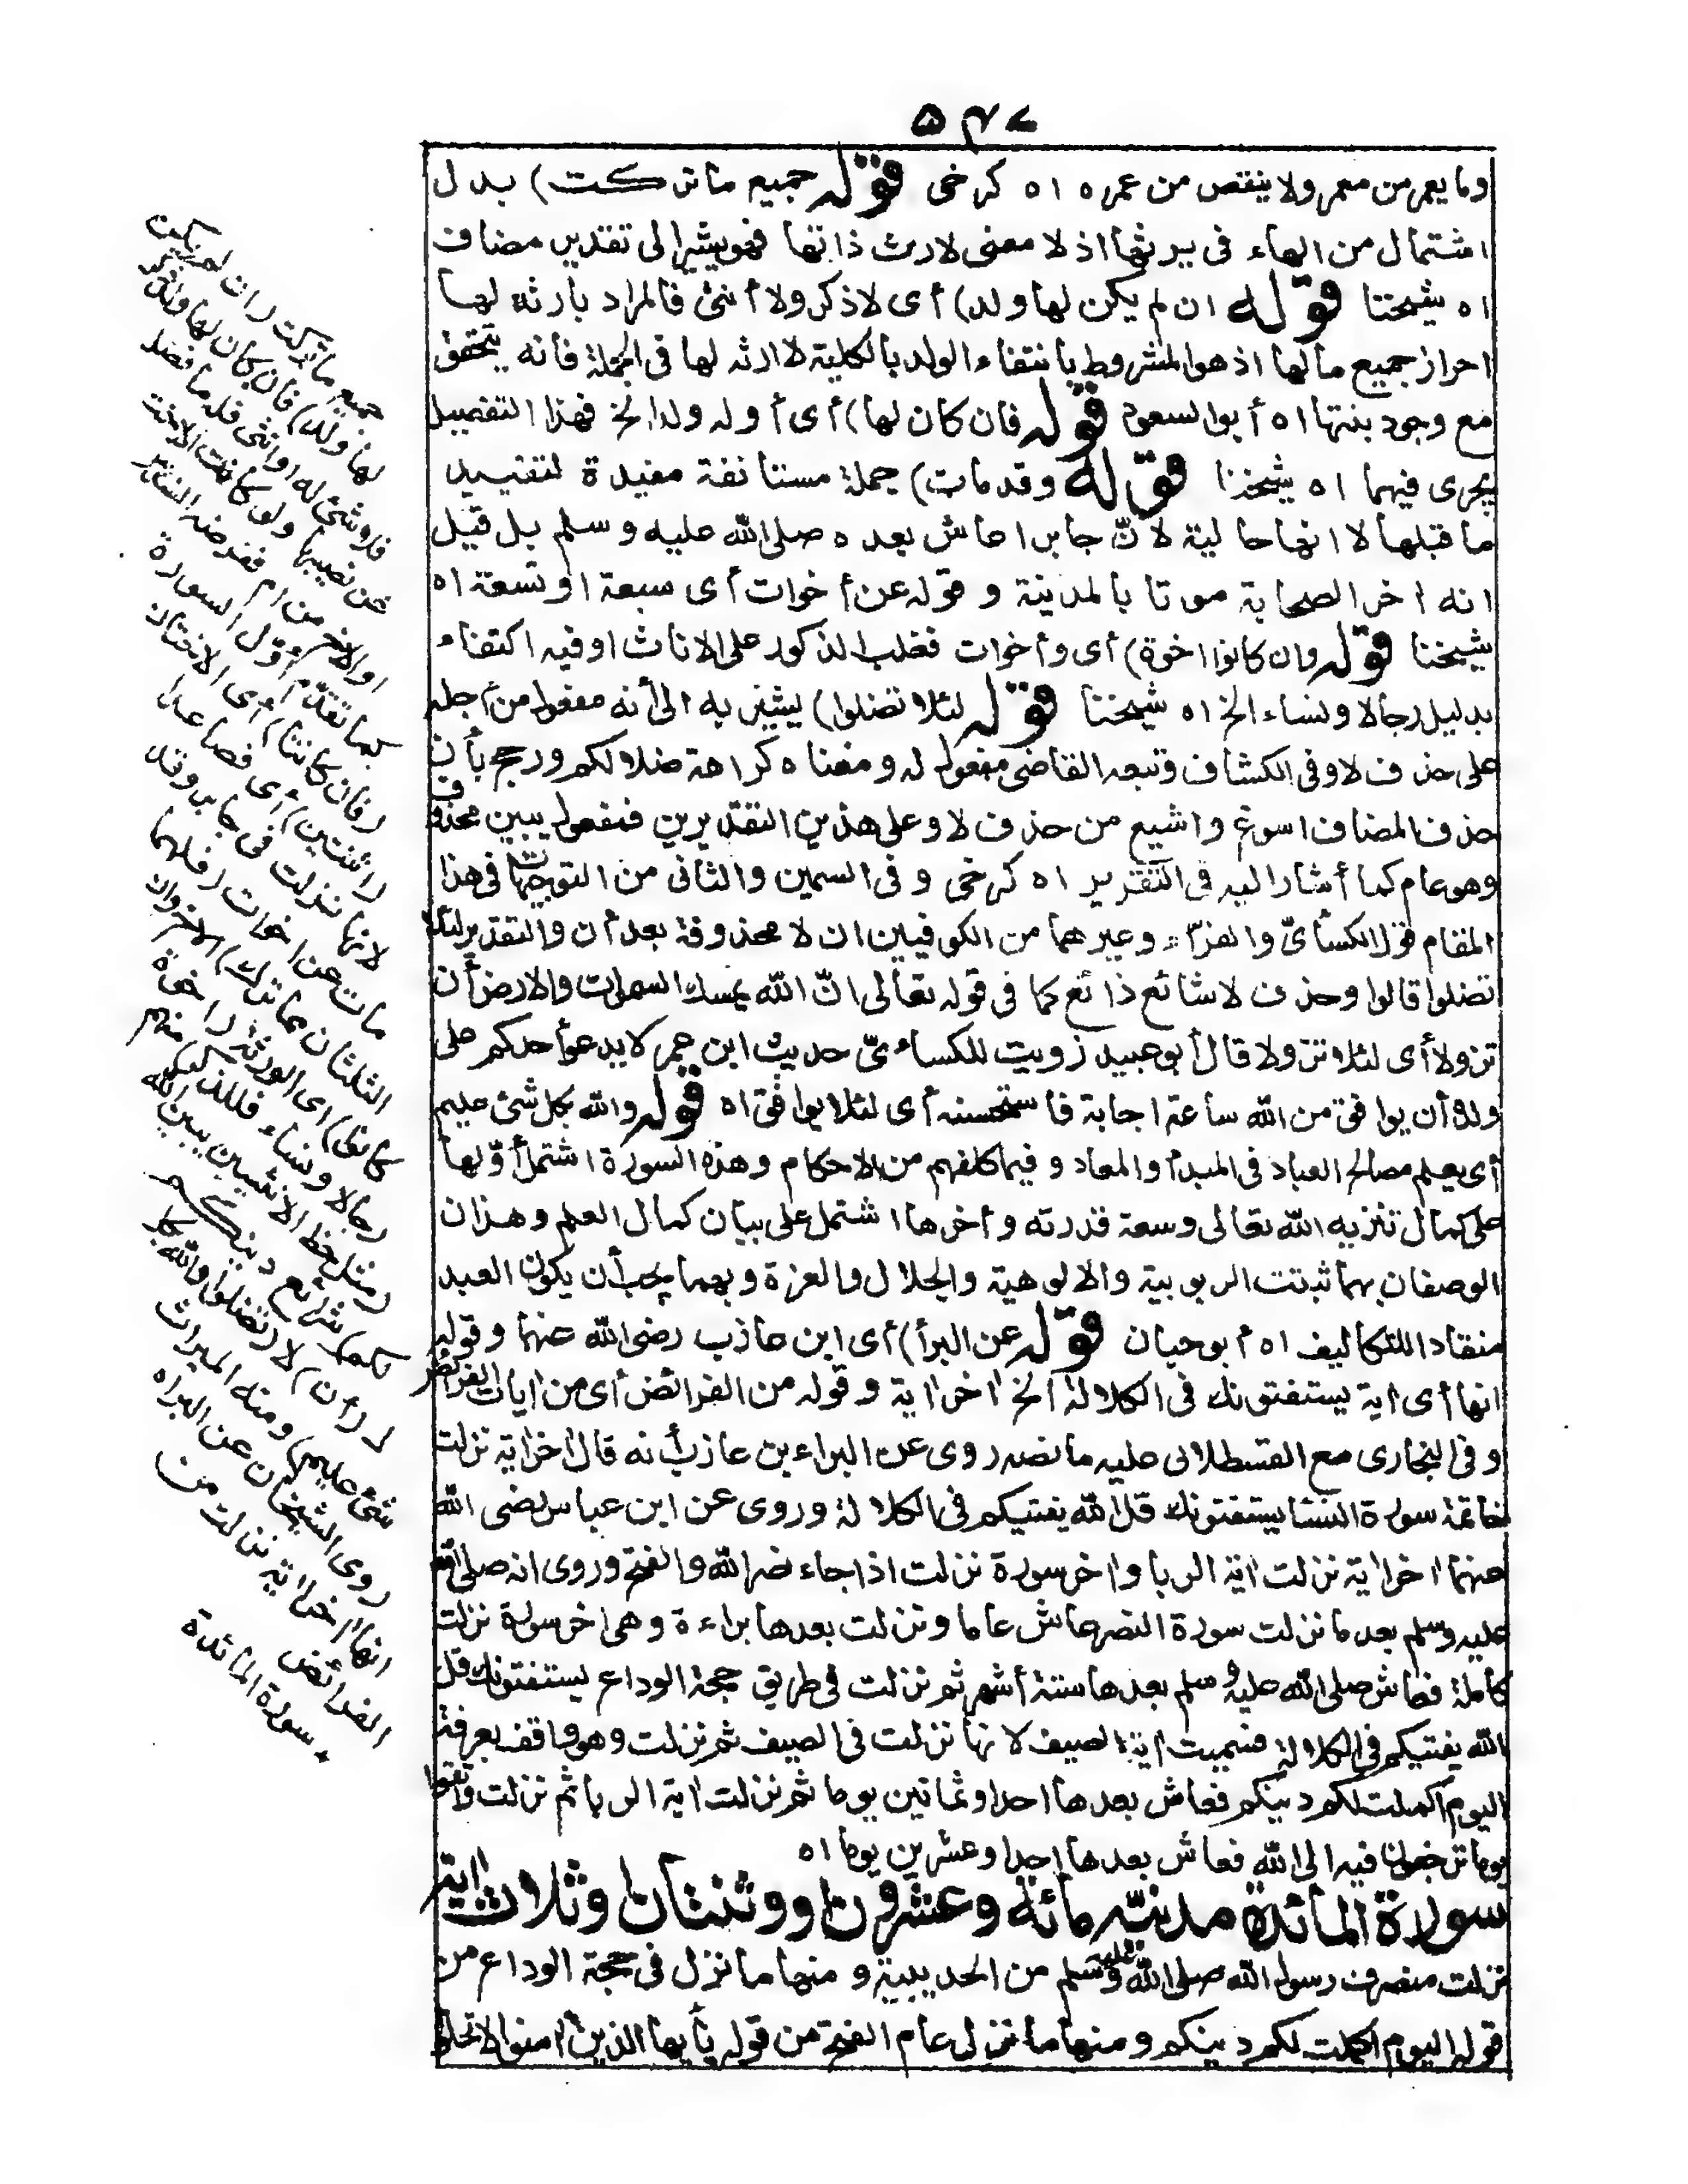 ٥٤٧
وما يعمر من معمر ولا ينقص من عمره اه كرخى قوله جميع ما تركت) بدل
اشتمال من الهاء فى يرثها اذ لا معنى لارث ذاتها فهو يشير الى تقدير مضاف
اه شيخنا قوله ان لم يكن لها ولد) أى لا ذكر ولا أنثى فالمراد بارثه لها
احراز جميع مالها اذ هو المشروط بانتفاء الولد بالكلية لا ارثه لها فى الجملة فانه يتحقق
مع وجود بنتها اه أبو السعود قوله فان كان لها) أى أو له ولد الخ فهذا التفصيل
يجرى فيهما اه شيخنا قوله وقد مات) جملة مستانفة مفيدة لتقييد
ما قبلها لا انها حالية لانّ جابرا عاش بعده صلى الله عليه وسلم بل قيل
انه اخر الصحابة موتا بالمدينة و قوله عن أخوات أى سبعة او تسعة اه
شيخنا قوله وان كانوا اخوة) أى وأخوات فغلب الذكور على الاناث او فيه اكتفاء
بدليل رجالا ونساء الخ اه شيخنا قوله لئلا تضلوا) يشير به الى أنه مفعول من أجله
على حذف لا وفى الكشاف وتبعه القاضى مفعول له ومعناه كراهة ضلالكم ورجح بأن
حذف المضاف اسوغ واشيع من حذف لا وعلى هذين التقديرين فمفعول يبين محذوف
وهو عام كما أشار اليه فى التقرير اه كرخى و فى السمين والثانى من التوجيهات فى هذا
المقام قول الكسائىّ والفرّاء وغيرهما من الكوفيين ان لا محذوفة بعد أن والتقدير لئلا
تضلوا قالوا وحذف لا شائع ذائع كما فى قوله تعالى انّ الله يمسك السموات والارض أن
تزولا أى لئلا تزولا قال أبو عبيد رويت للكساءىّ حديث ابن عمر لا يدعو أحدكم على
ولده أن يوافق من الله ساعة اجابة فاستحسنه أى لئلا يوافق اه قوله والله بكل شئ عليم
أى يعلم مصالح العباد فى المبدأ والمعاد و فيما كلفهم من الاحكام و هذه السورة اشتمل أوّلها
على كمال تنزيه الله تعالى وسعة قدرته و أخرها اشتمل على بيان كمال العلم وهذان
الوصفان بهما ثبتت الربوبية والالوهية والجلال والعزة وبهما يجب أن يكون العبد
منقادا للتكاليف اه أبو حيان قوله عن البرأ) أى ابن عازب رضى الله عنهما و قوله
انها أى اية يستفتونك فى الكلالة الخ اخر اية و قوله من الفرائض أى من ايات الفرائض
و فى البخارى مع القسطلانى عليه ما نصه روى عن البراء بن عازب أنه قال اخر اية نزلت
خاتمة سورة النسا يستفتونك قل الله يفتيكم فى الكلالة وروى عن ابن عباس رضى الله
عنهما اخر اية نزلت اية الربا واخر سورة نزلت اذا جاء نصر الله والفتح وروى انه صلى الله
عليه وسلم بعد ما نزلت سورة النصر عاش عاما ونزلت بعدها براءة وهى اخر سورة نزلت
كاملة فعاش صلى الله عليه وسلم بعدها ستة أشهر ثم نزلت فى طريق حجة الوداع يستفتونك قل
الله يفتيكم فى الكلالة فسميت اية الصيف لانها نزلت فى الصيف ثم نزلت وهو واقف بعرفة
اليوم أكملت لكم دينكم فعاش بعدها احدا وثمانين يوما ثم نزلت اية الربا ثم نزلت واتقوا
يوما ترجعون فيه الى الله فعاش بعدها احدا وعشرين يوما اه
سورة المائدة مدنيّة مائة وعشرون او وثنتان وثلاث اية
نزلت منصرف رسول الله صلى الله عليه وسلم من الحديبية و منها ما نزل فى حجة الوداع من
قوله اليوم اكملت لكم دينكم و منها ما نزل عام الفتح من قوله يأيها الذين امنوا لا تحلوا
جميع ما تركت (ان لم يكن
لها ولد) فان كان لها ولد ذكر
فلا شئ له او انثى فله ما فضل
عن نصيبها ولو كانت الاخت
او الاخ من ام ففرضه السدس
كما تقدّم أوّل السورة
(فان كانتا) أى الاختان
(اثنتين) أى فصاعدا
لانها نزلت فى جابر وقد
مات عن اخوات (فلهما
الثلثان مما ترك) الاخ وان
كانوا) اى الورثة (اخوة
رجالا ونساء فللذكر) منهم
(مثل حظ الانثيين يبين الله
لكم) شرائع دينكم
لـ(أن) لا (تضلوا والله بكل
شئ عليم) ومنه الميراث
روى الشيخان عن البراء
انها اخر اية نزلت من
الفرائض
سورة المائدة